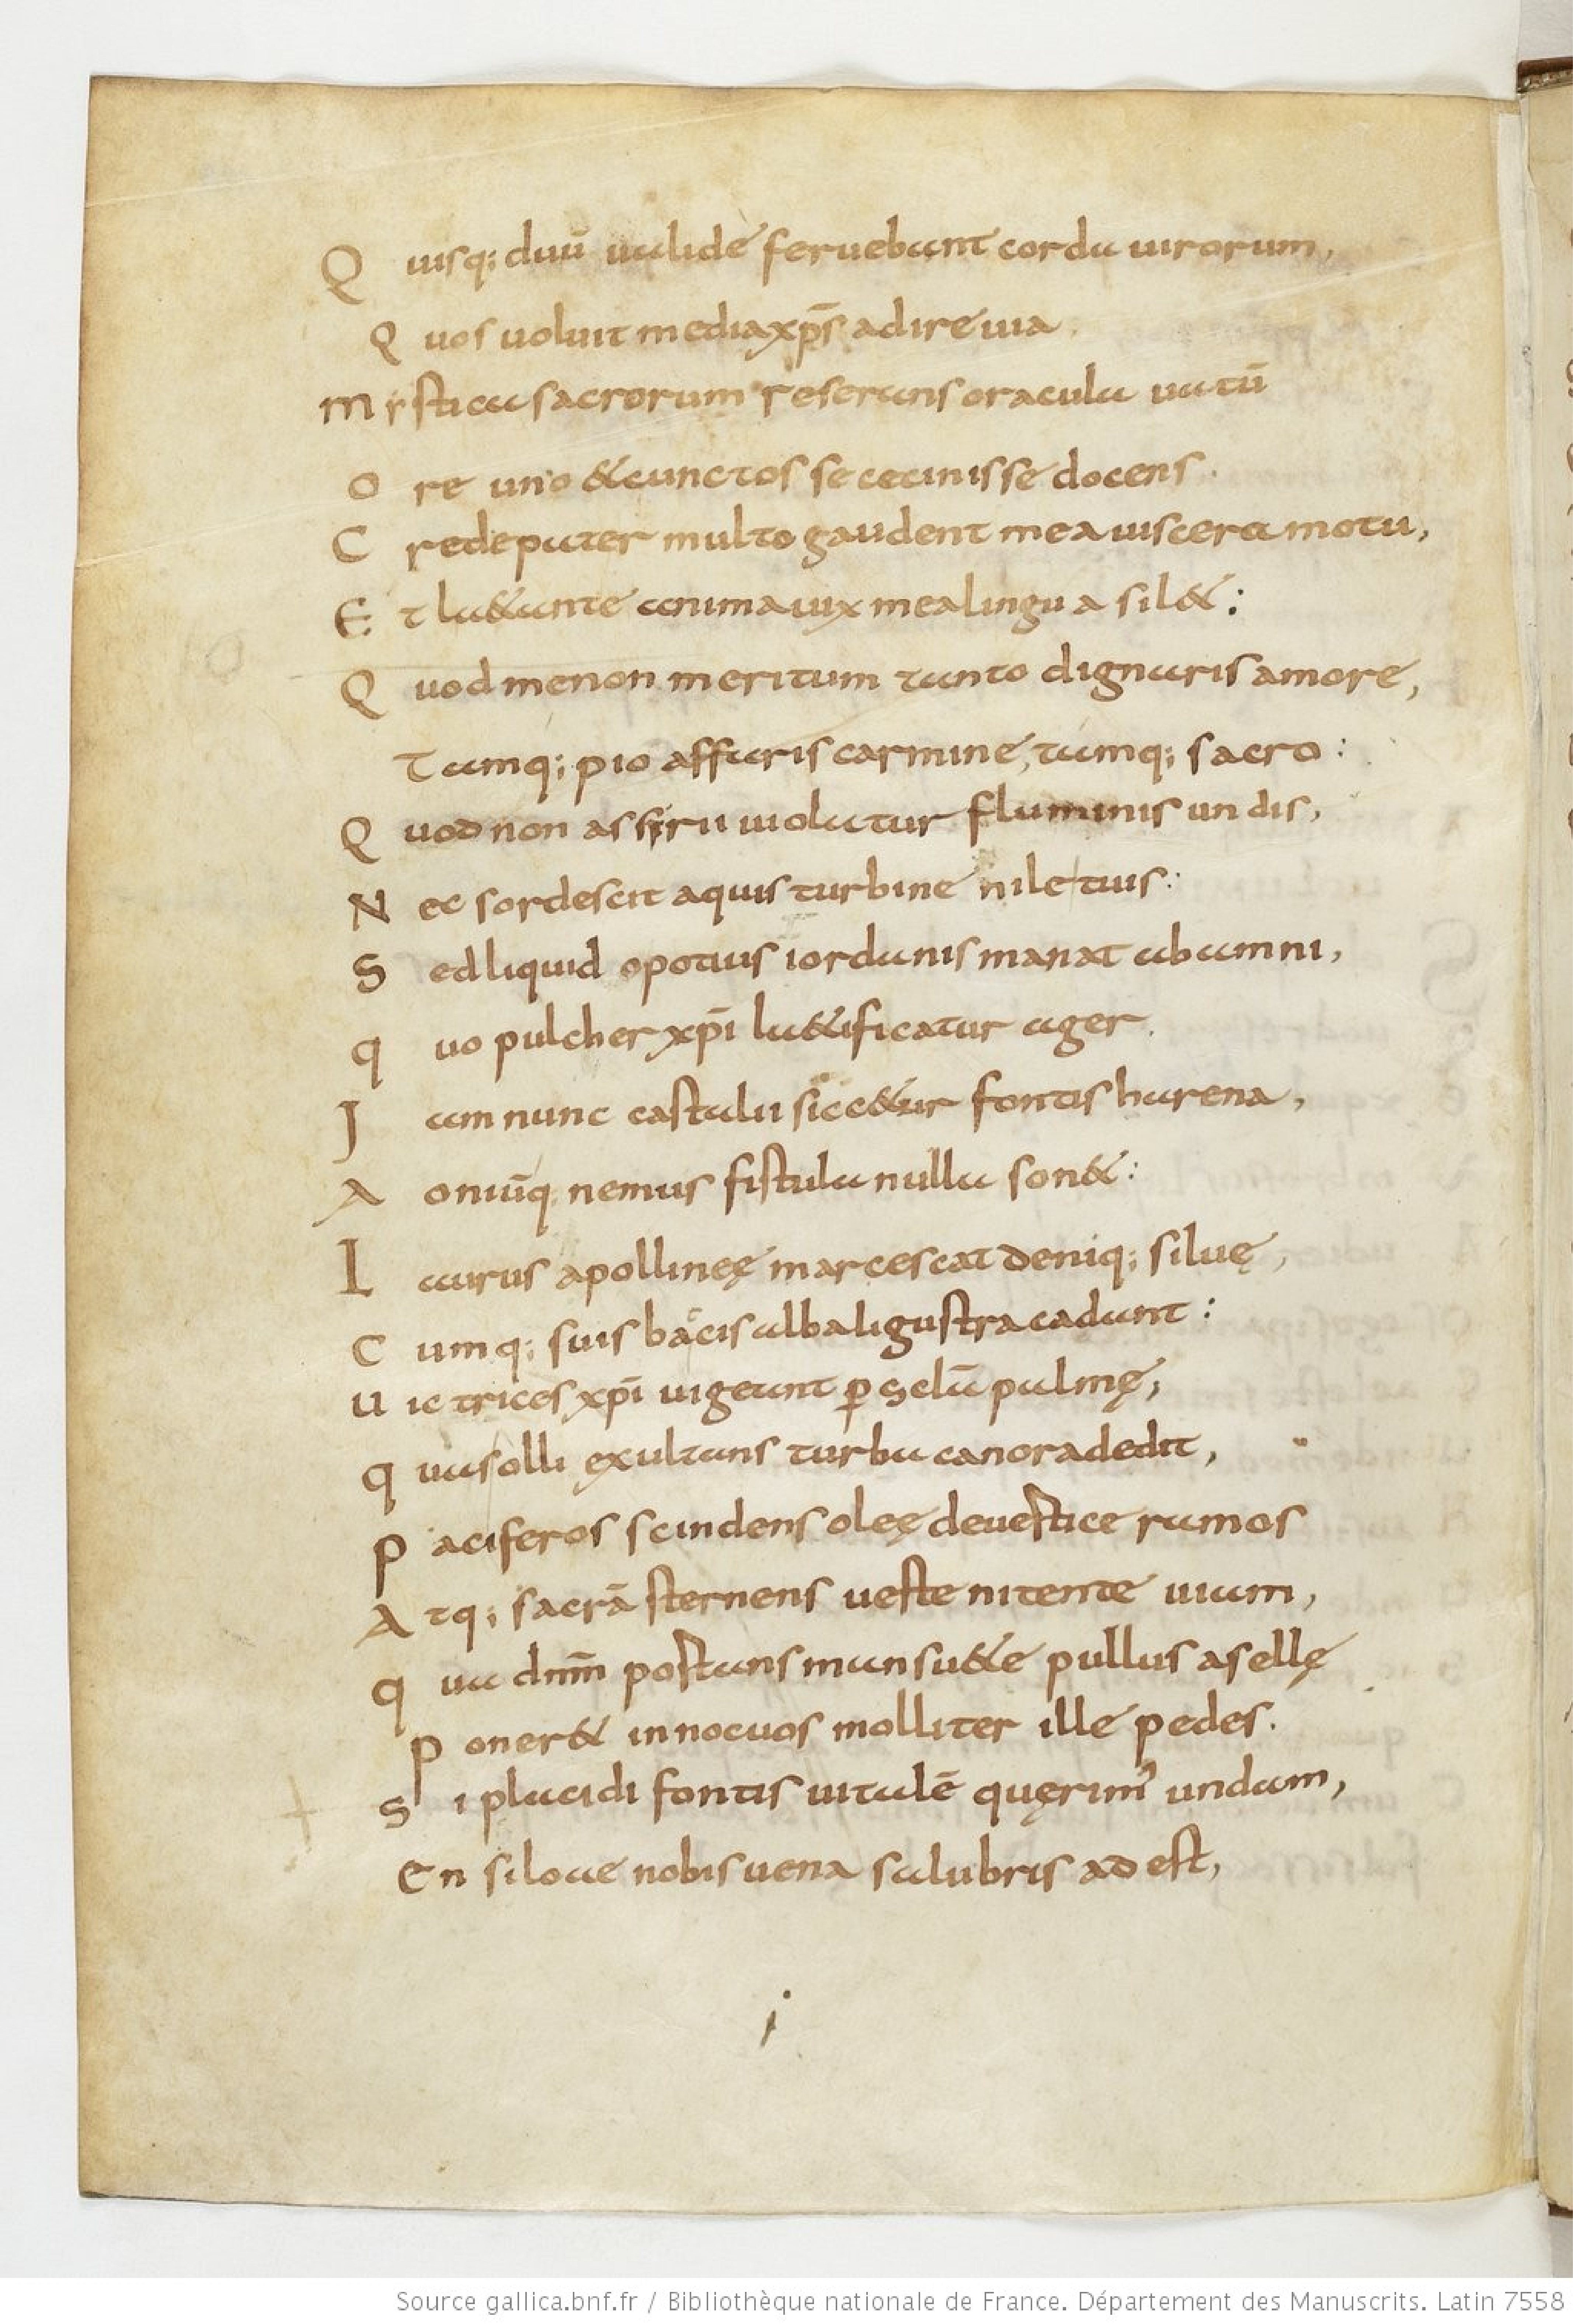 Q uisq; duū ualide feruebant corda uirorum,
Q uos uoluit media xp̄s adire uia.
M ystica sacrorum reserans oracula uatū
O re uno & cunctos se cecinisse docens.
C rede pater multo gaudent mea uiscera motu,
E t la&ante anima uix mea lingua sil&:
Q uod me non meritum tanto dignaris amore,
Tamq; pio affaris carmine, tamq; sacro:
Q uod non assyrii uiolatur fluminis undis,
N ec sordescit aquis turbine nile tuis:
S ed liquid opotius iordanis manat ab amni,
q uo pulcher xp̄i la&ificatur ager.
J am nunc castalii sicc&ur fontis harena,
A oniūq. nemus fistula nulla son&:
L aurus apollineę marcescat deniq; siluę,
C umq; suis bacis alba ligustra cadunt:
U ictrices xp̄i uigeant ꝑ sclā palmę,
q uas olli exultans turba canora dedit,
P aciferos scindens oleę de uertice ramos
A tq; sacrā sternens ueste nitente uiam,
q ua dnm̄ portans mansu&e pullus asellę
P oner& innocuos molliter ille pedes.
S i placidi fontis uitalē quęrim' undam,
En siloae nobis uena salubris adest,
Source gallica.bnf.fr / Bibliothèque nationale de France. Département des Manuscrits. Latin 7558